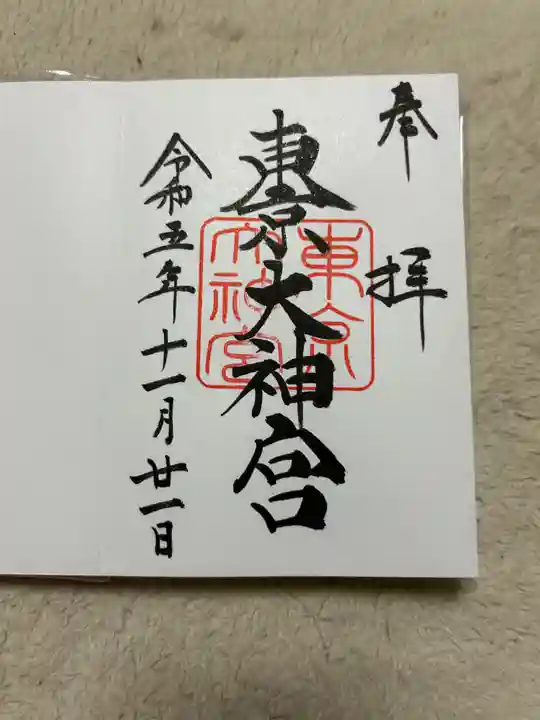 奉拝
東京大神宮
東京
大神宮
令和五年十一月廿一日